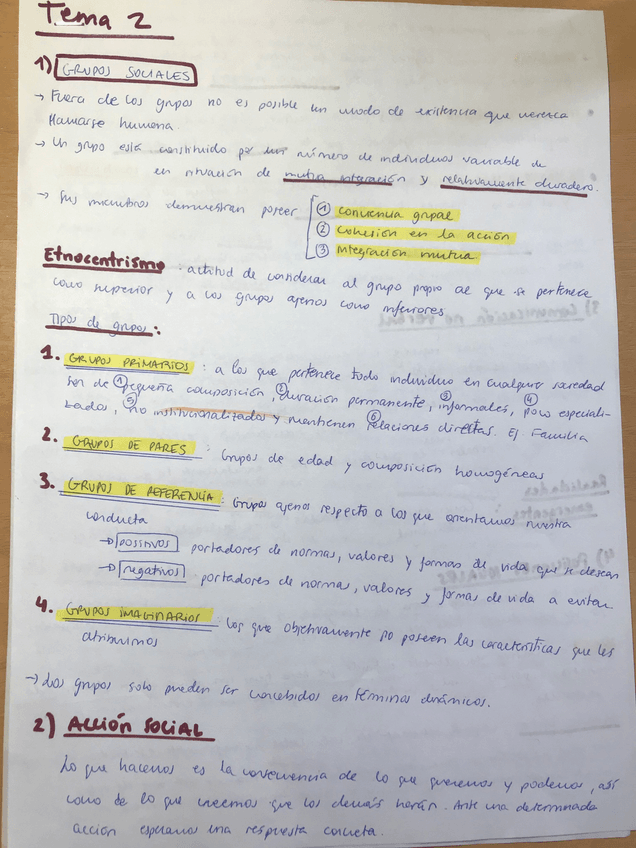 Tema 2
1) GRUPOS SOCIALES
→ Fuera de los grupos no es posible un modo de existencia que merezca
llamarse humana.
→ Un grupo está constituido por un número de individuos variable de
en situación de mutua integración y relativamente duradero.
→ Sus miembros demuestran poseer ① conciencia grupal
② cohesión en la acción
③ integración mutua
Etnocentrismo: actitud de considerar al grupo propio al que se pertenece
como superior y a los grupos ajenos como inferiores.
Tipos de grupos:
1. GRUPOS PRIMARIOS: a los que pertenece todo individuo en cualquier sociedad
Son de ① pequeña composición, ② duración permanente, ③ informales, ④ poco especiali-
zados, ⑤ no institucionalizados y mantienen ⑥ relaciones directas. Ej Familia
2. GRUPOS DE PARES: Grupos de edad y composición homogéneas
3. GRUPOS DE REFERENCIA: Grupos ajenos respecto a los que orientamos nuestra
conducta
→ positivos portadores de normas, valores y formas de vida que se desean
→ negativos portadores de normas, valores y formas de vida a evitar
4. GRUPOS IMAGINARIOS: los que objetivamente no poseen las características que les
atribuimos
→ Los grupos solo pueden ser concebidos en términos dinámicos.
2) ACCIÓN SOCIAL
Lo que hacemos es la consecuencia de lo que queremos y podemos, así
como de lo que creemos que los demás harán. Ante una determinada
acción esperamos una respuesta concreta.